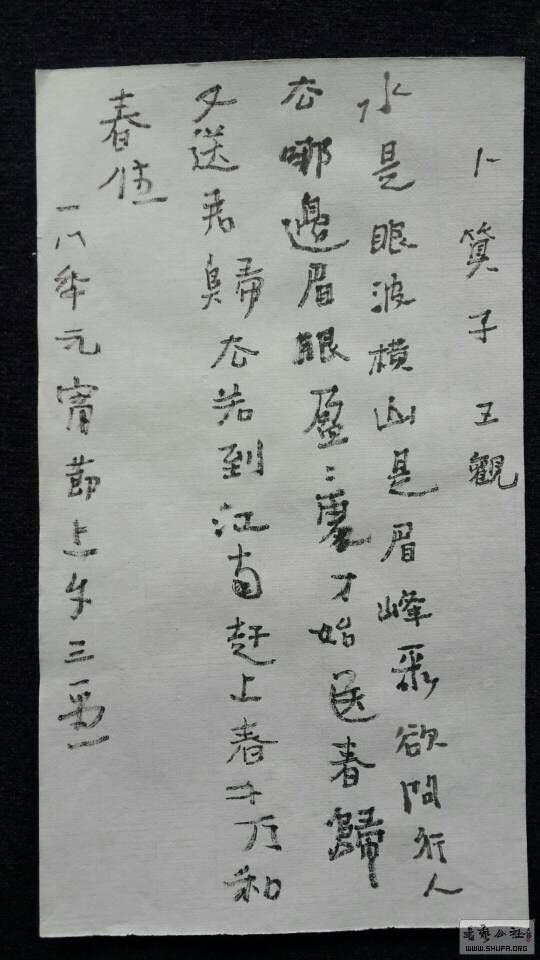 卜算子 王觀
水是眼波橫山是眉峰聚欲問行人
去哪邊眉眼盈:處才始送春歸
又送君歸去若到江南赶上春千万和
春住
一八年元宵節上午三
WWW.SHUFA.ORG